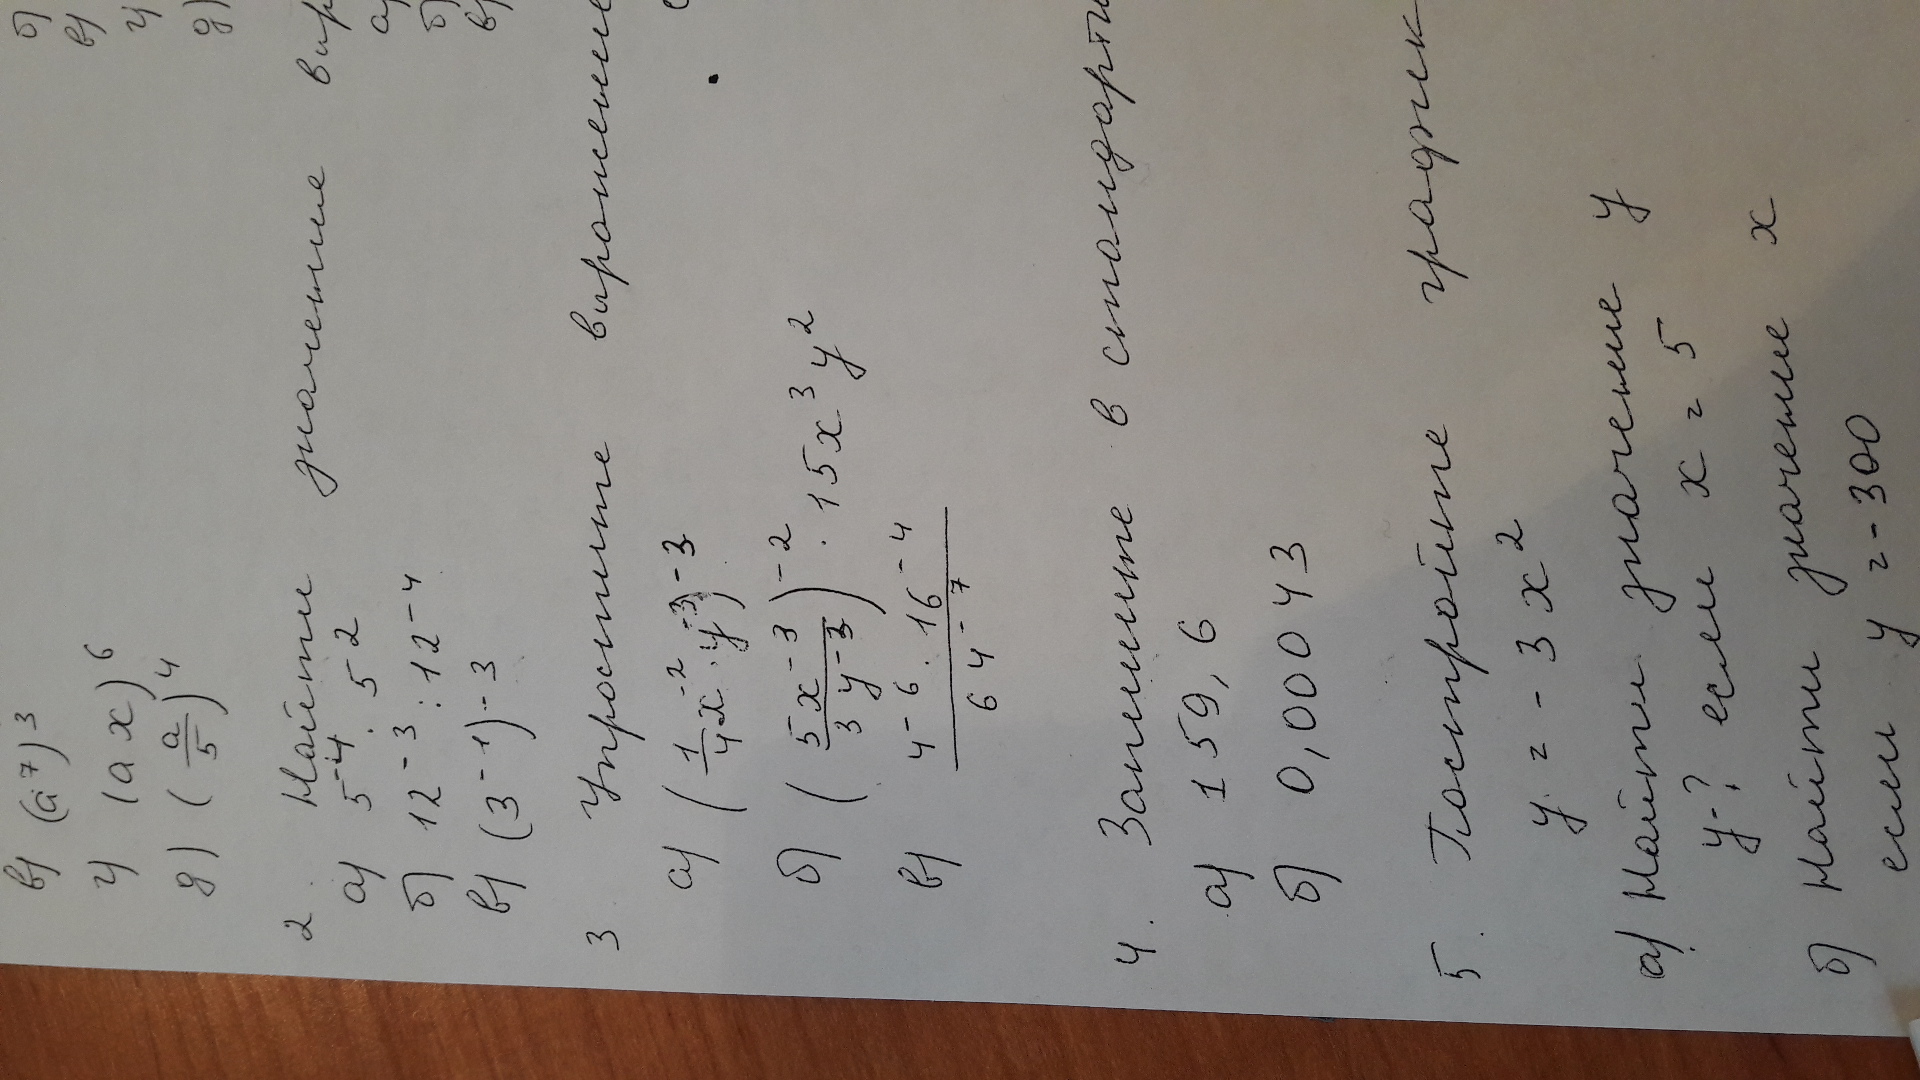 в) (a⁷)³
г) (ax)⁶
д) (a/5)⁴
2. Найти значение выр
а) 5⁻⁴ · 5²
б) 12⁻³ : 12⁻⁴
в) (3⁻¹)⁻³
3 Упростите выражение
а) (1/4 x⁻² · y⁻³)⁻³
б) (5x⁻³/3y⁻³)⁻² · 15x³y²
в) 4⁻⁶ · 16⁻⁴ / 64⁻⁷
4. Запишите в стандартн
а) 159,6
б) 0,00043
5. Постройте график
y = -3x²
а) Найти значение y
y-? если x = 5
б) Найти значение x
если y = -300
б)
в)
г)
д)
а)
б)
в)